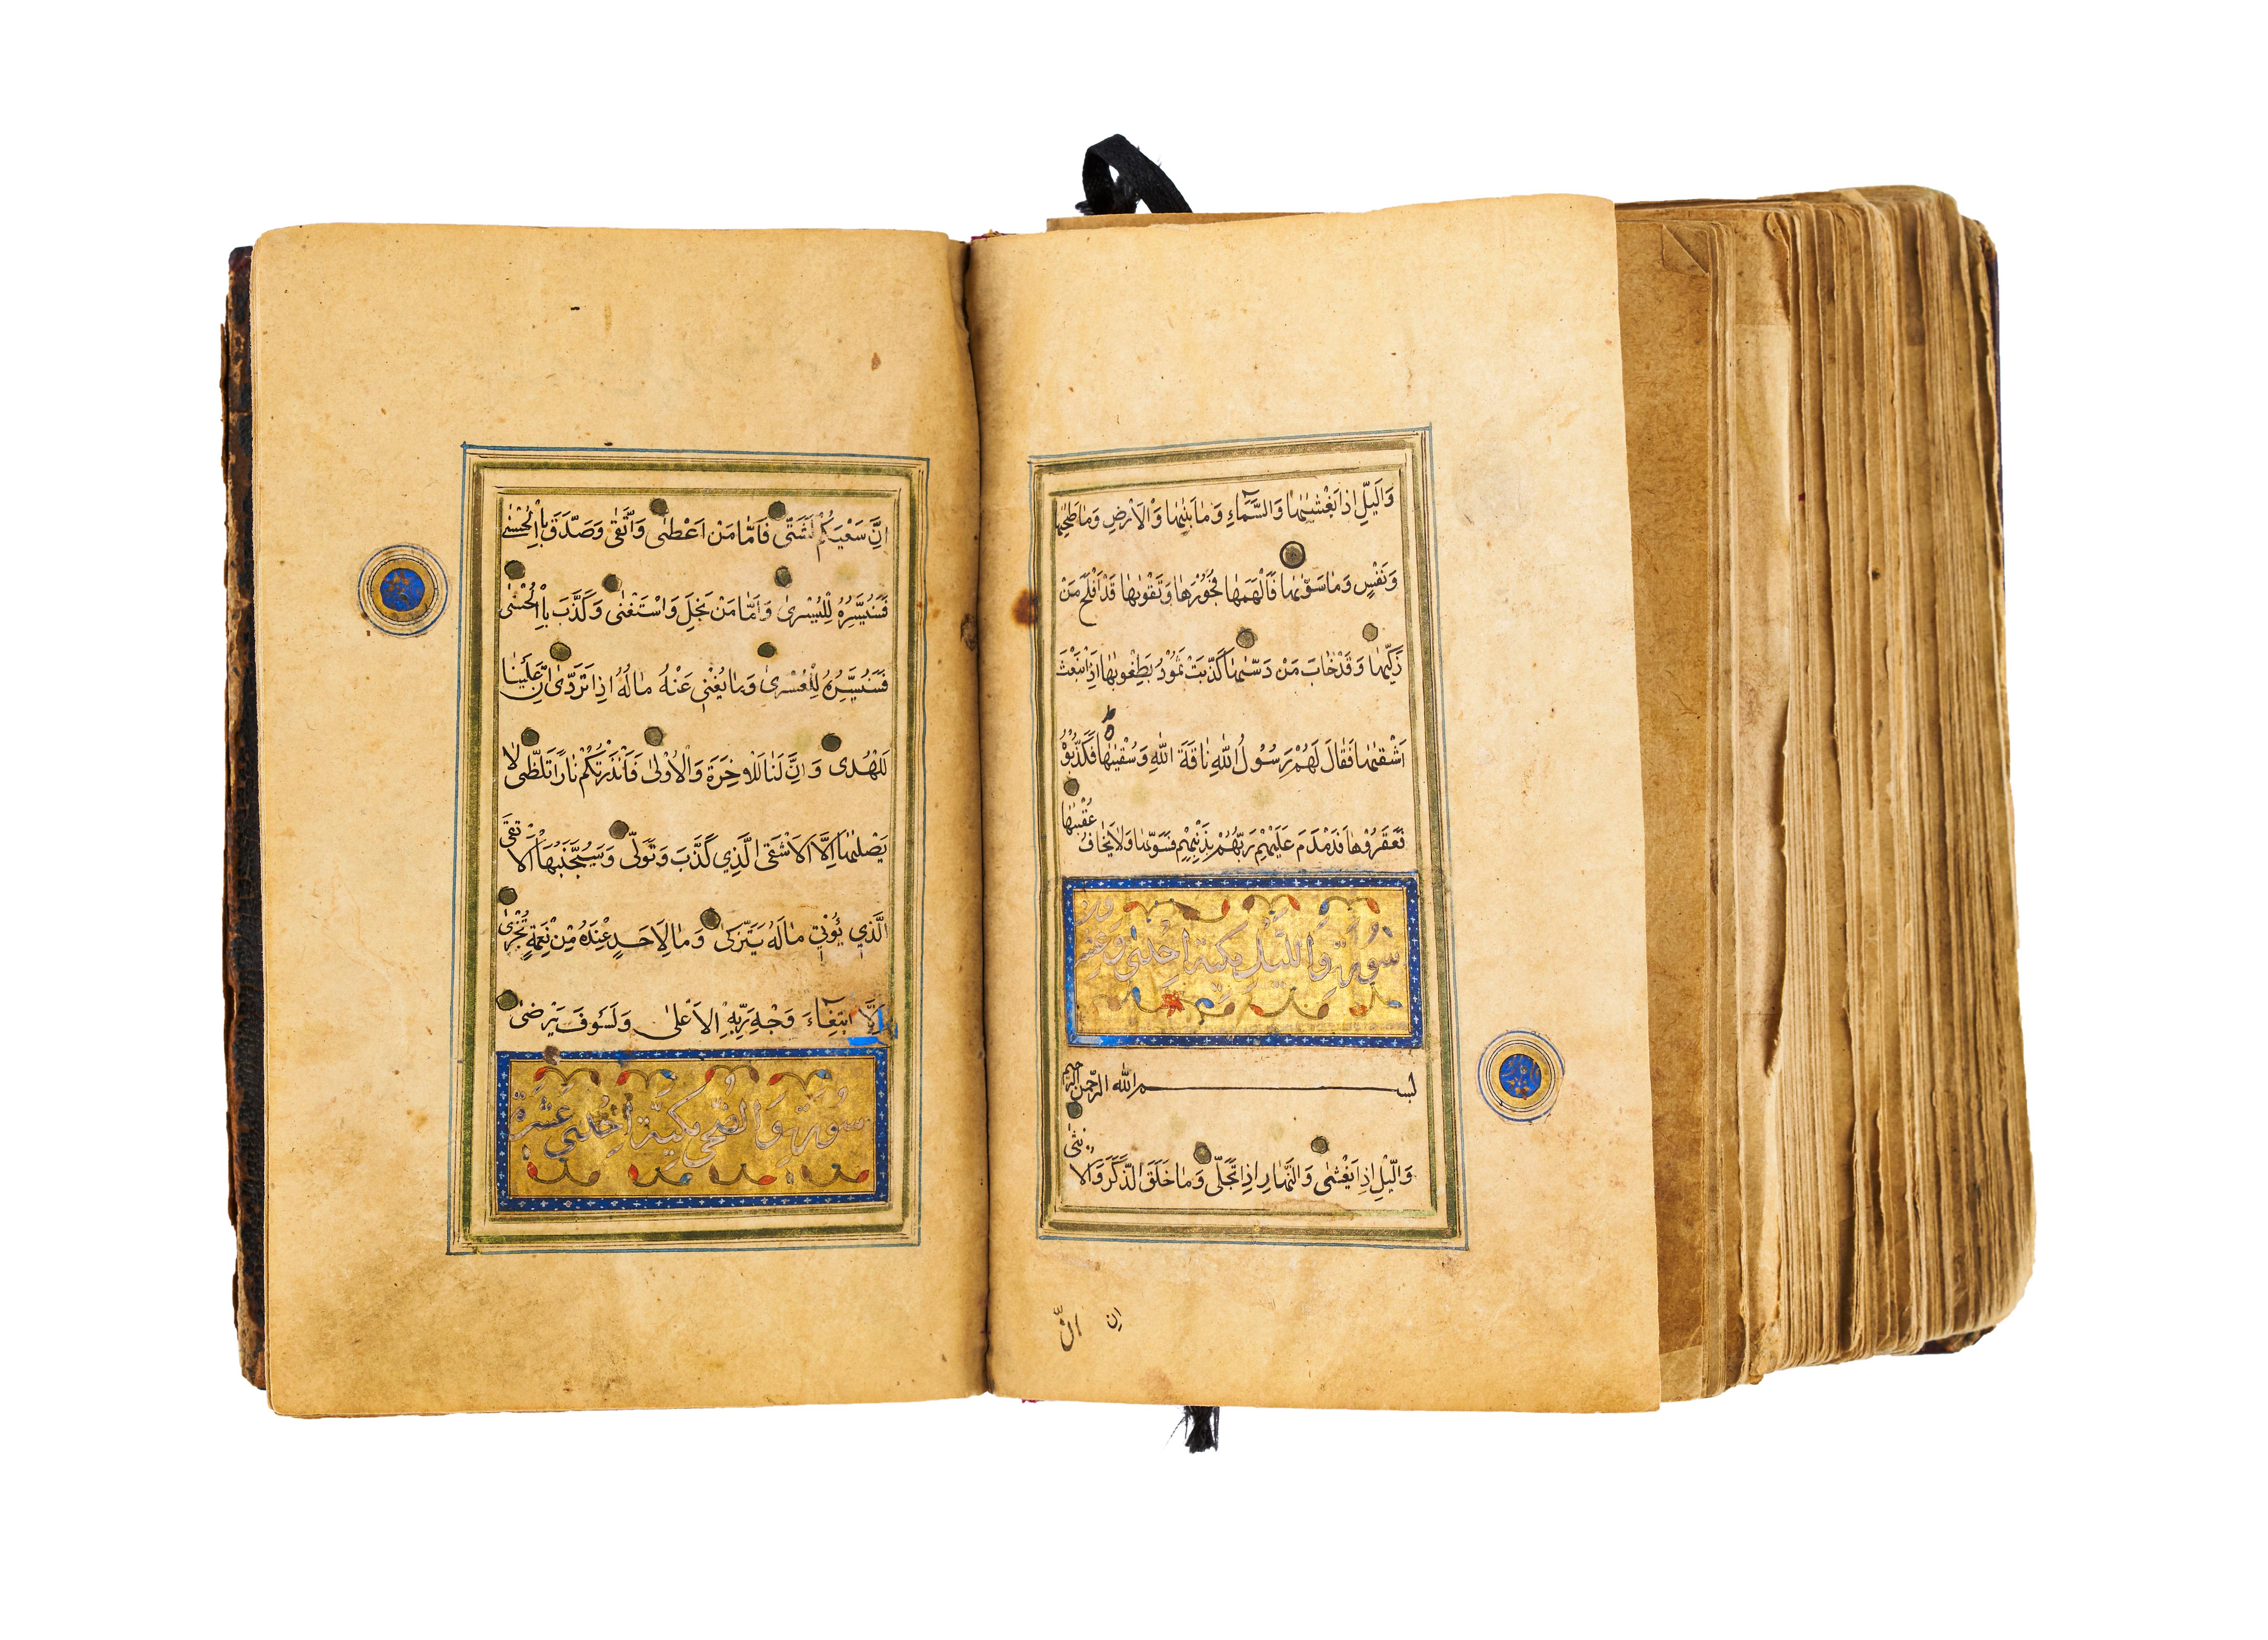 وَالَّيْلِ اِذَا يَغْشٰيهَا وَالسَّمَآءِ وَمَا بَنٰيهَا وَالْاَرْضِ وَمَا طَحٰيهَا
وَنَفْسٍ وَمَا سَوّٰيهَا فَاَلْهَمَهَا فُجُوْرَهَا وَتَقْوٰيهَا قَدْ اَفْلَحَ مَنْ
زَكّٰيهَا وَقَدْ خَابَ مَنْ دَسّٰيهَا كَذَّبَتْ ثَمُوْدُ بِطَغْوٰيهَا اِذِ انْبَعَثَ
اَشْقٰيهَا فَقَالَ لَهُمْ رَسُوْلُ اللّٰهِ نَاقَةَ اللّٰهِ وَسُقْيٰهَا فَكَذَّبُوْهُ
فَعَقَرُوْهَا فَدَمْدَمَ عَلَيْهِمْ رَبُّهُمْ بِذَنْبِهِمْ فَسَوّٰيهَا وَلَا يَخَافُ عُقْبٰيهَا
سُوْرَةُ وَاللَّيْلِ مكية احدى وعشرون
بسم الله الرحمن الرحيم
وَالَّيْلِ اِذَا يَغْشٰى وَالنَّهَارِ اِذَا تَجَلّٰى وَمَا خَلَقَ الذَّكَرَ وَالْاُنْثٰى
ان
انّ
اِنَّ سَعْيَكُمْ لَشَتّٰى فَاَمَّا مَنْ اَعْطٰى وَاتَّقٰى وَصَدَّقَ بِالْحُسْنٰى
فَسَنُيَسِّرُهُ لِلْيُسْرٰى وَاَمَّا مَنْ بَخِلَ وَاسْتَغْنٰى وَكَذَّبَ بِالْحُسْنٰى
فَسَنُيَسِّرُهُ لِلْعُسْرٰى وَمَا يُغْنِي عَنْهُ مَالُهُ اِذَا تَرَدّٰى اِنَّ عَلَيْنَا
لَلْهُدٰى وَاِنَّ لَنَا لَلْاٰخِرَةَ وَالْاُوْلٰى فَاَنْذَرْتُكُمْ نَارًا تَلَظّٰى لَا
يَصْلٰيهَا اِلَّا الْاَشْقَى الَّذِي كَذَّبَ وَتَوَلّٰى وَسَيُجَنَّبُهَا الْاَتْقَى
الَّذِي يُؤْتِي مَالَهُ يَتَزَكّٰى وَمَا لِاَحَدٍ عِنْدَهُ مِنْ نِعْمَةٍ تُجْزٰى
اِلَّا ابْتِغَآءَ وَجْهِ رَبِّهِ الْاَعْلٰى وَلَسَوْفَ يَرْضٰى
سُوْرَةُ وَالضُّحٰى مَكِيَّة اِحْدٰى عَشَرَة